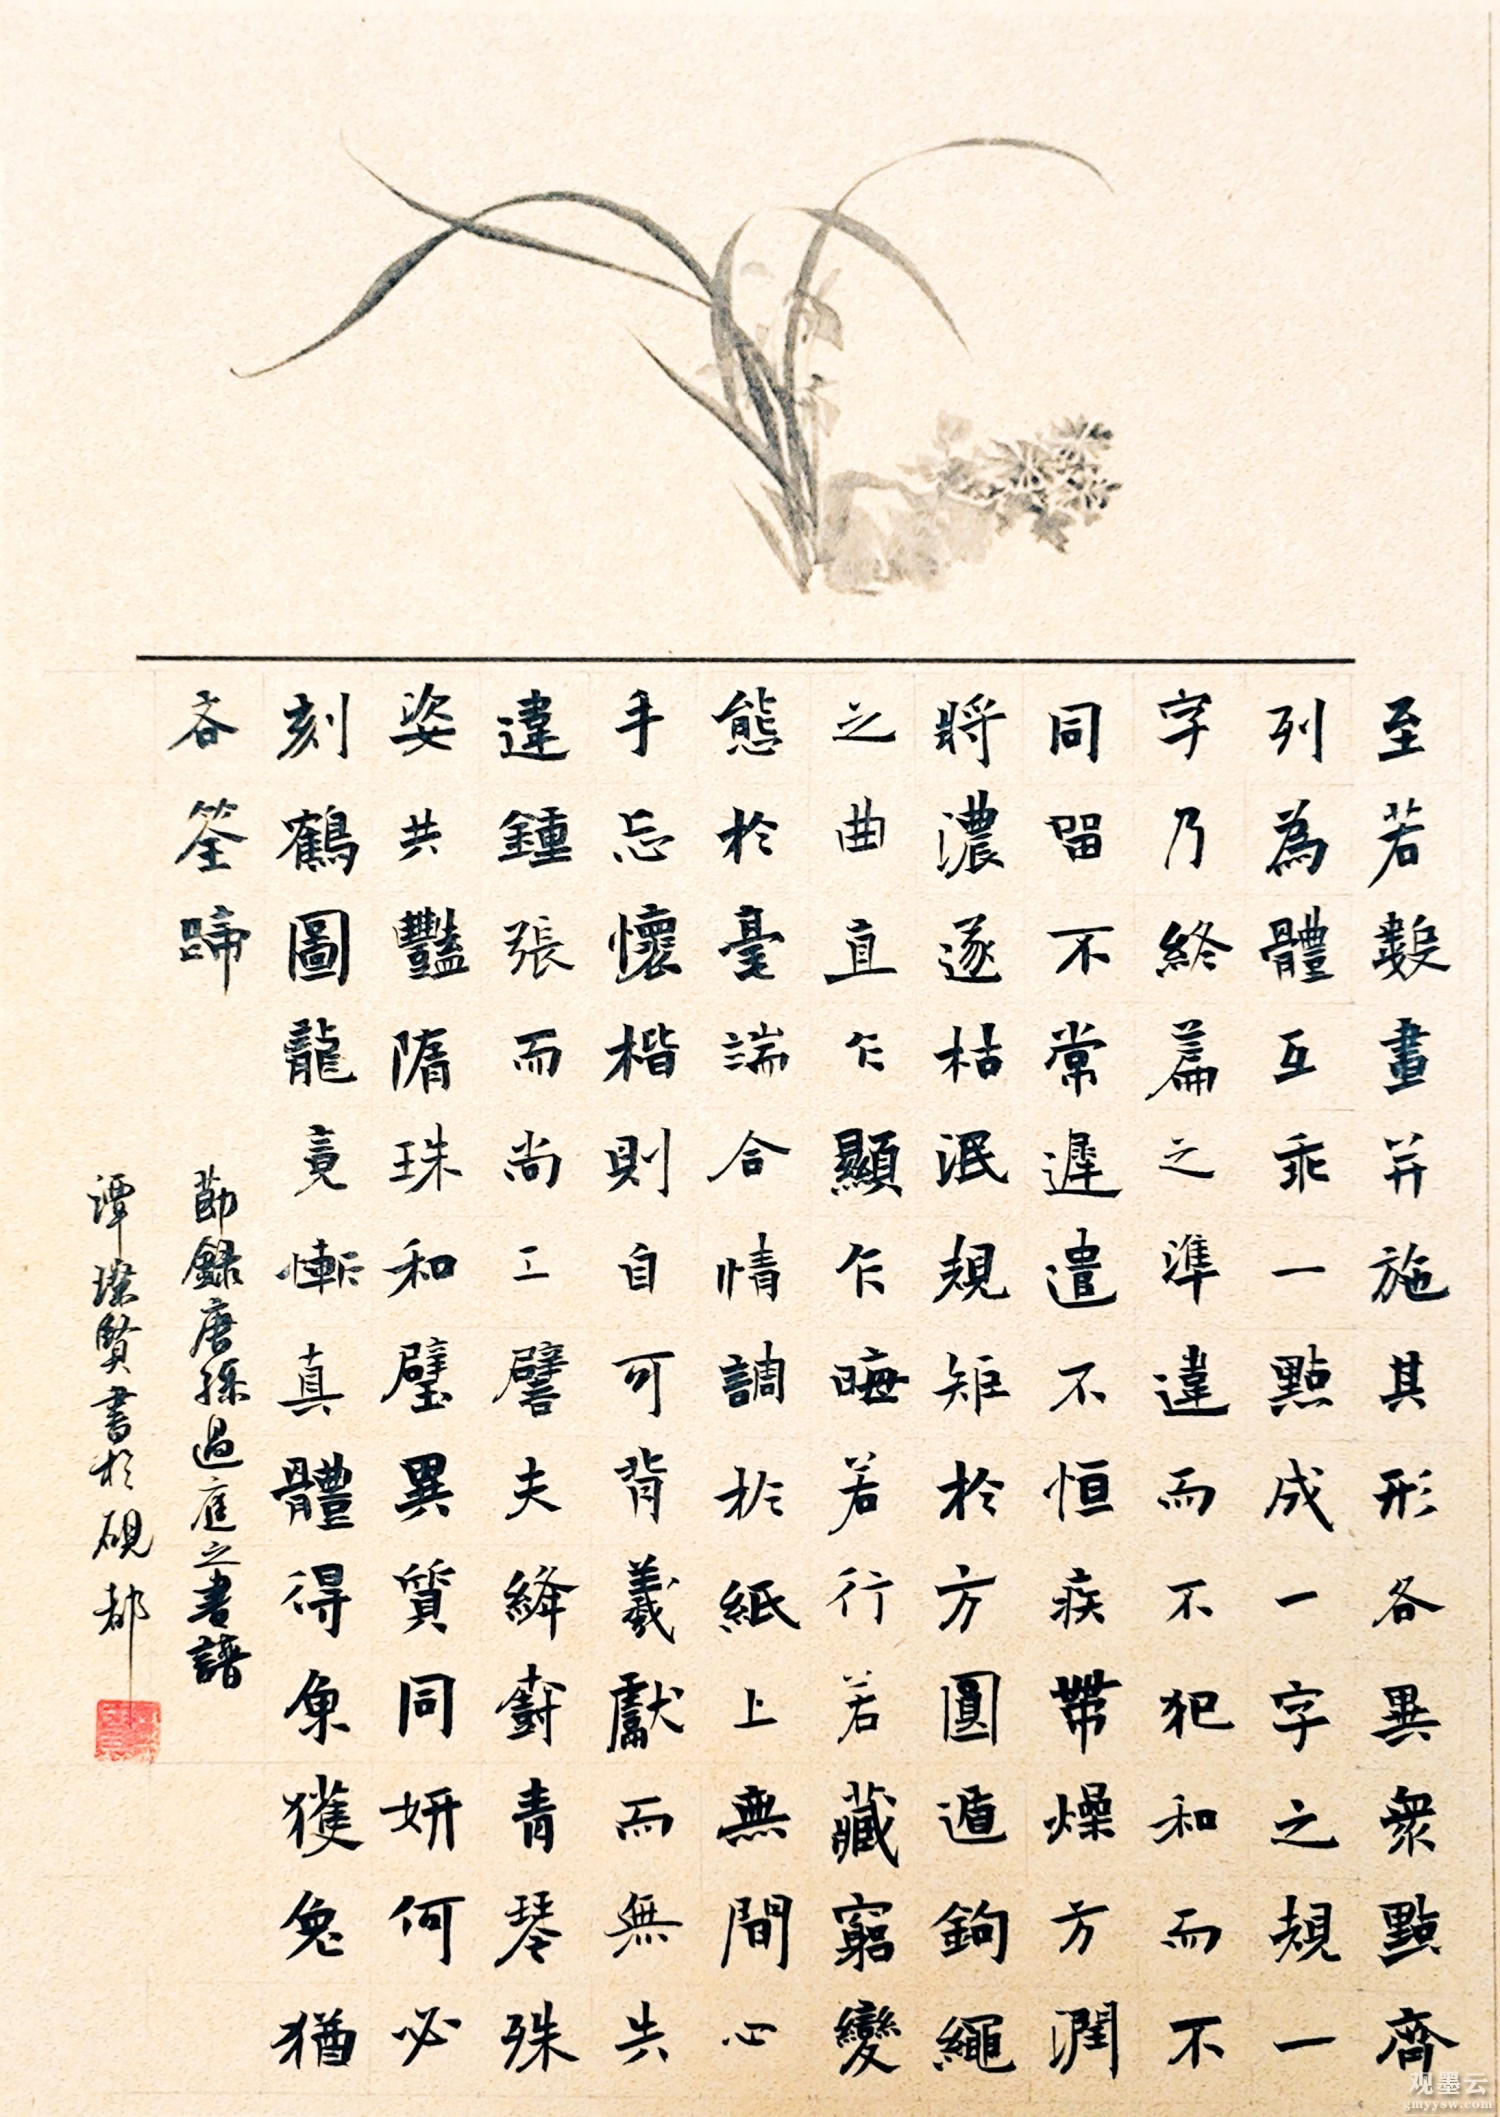 至若數畫并施其形各異衆點齊
列為體互乖一點成一字之規一
字乃終篇之準違而不犯和而不
同留不常遲遣不恒疾帶燥方潤
將濃遂枯泯規矩於方圓遁鉤繩
之曲直乍顯乍晦若行若藏窮變
態於毫端合情調於紙上無間心
手忘懷楷則自可背羲獻而無失
違鍾張而尚工譬夫絳樹青琴殊
姿共豔隋珠和璧異質同妍何必
刻鶴圖龍竟慚真體得魚獲兔猶
吝筌蹄
節錄唐孫過庭之書譜
谭璨賢書於硯都
观墨云
gmyysw.com